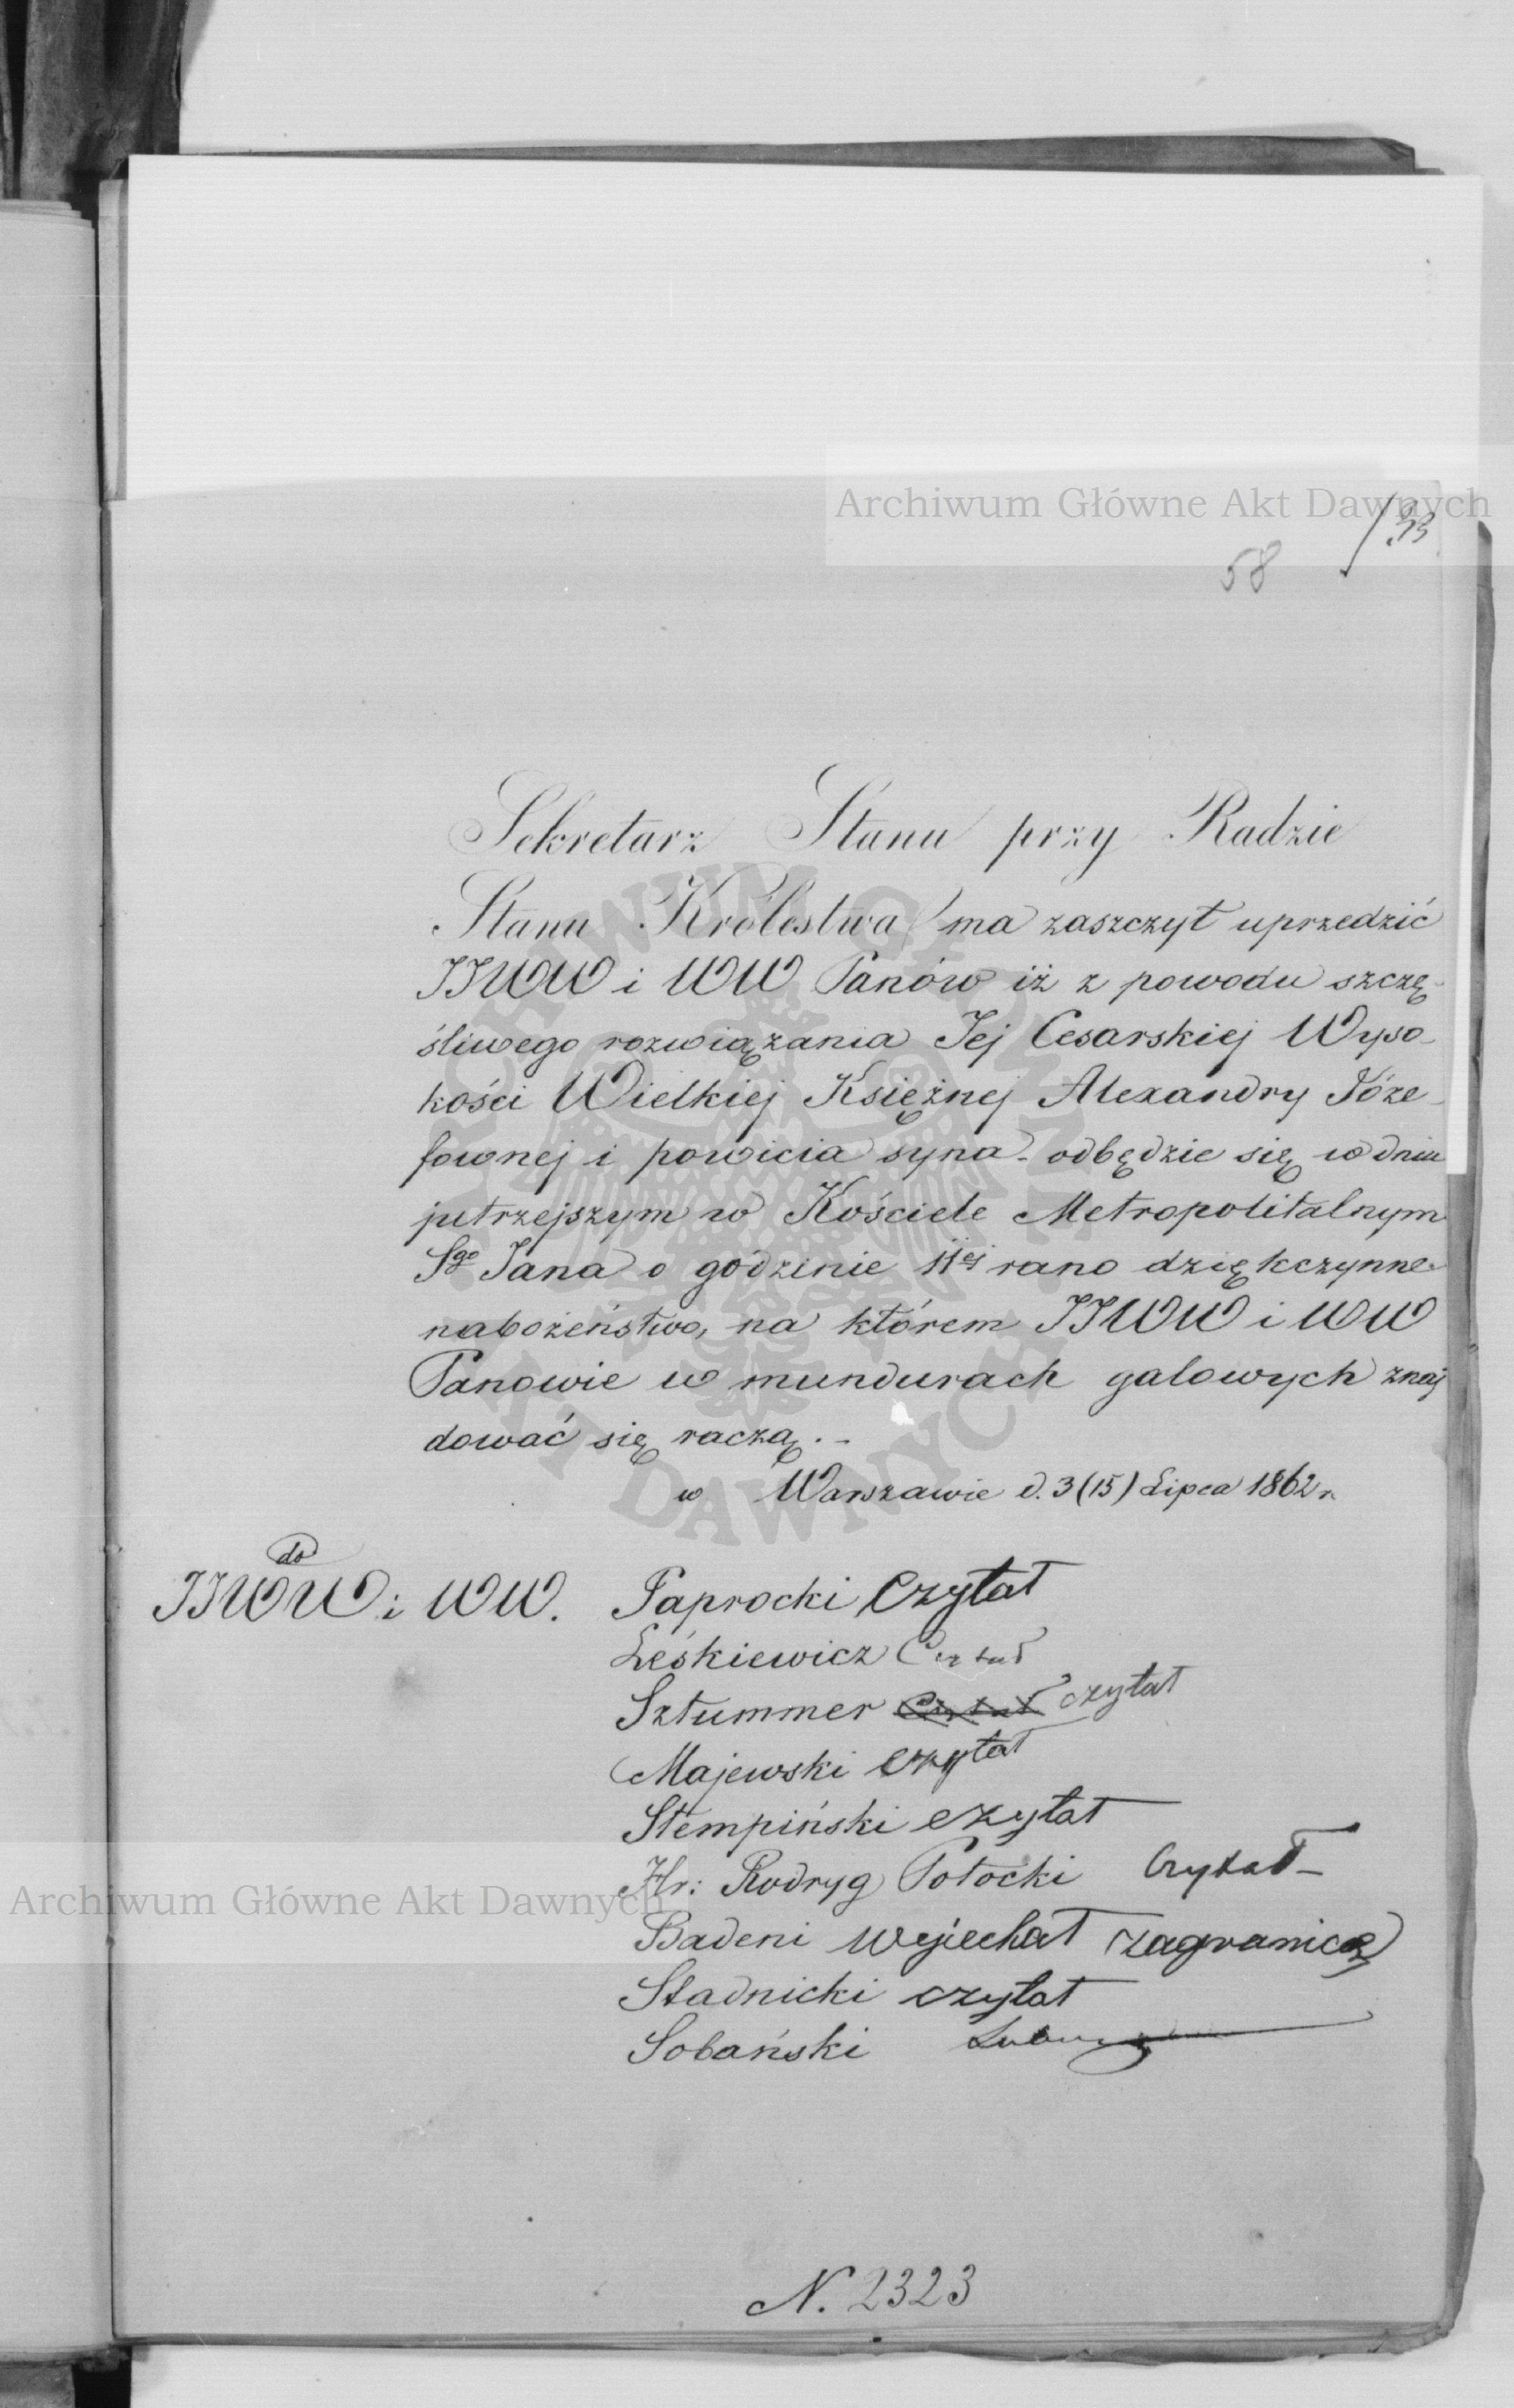 Archiwum Główne Akt Dawnych
58
33
Sekretarz Stanu przy Radzie
Stanu Królestwa ma zaszczyt uprzedzić
JJWW i WW Panów iż z powodu szczę-
śliwego rozwiązania Jej Cesarskiej Wyso-
kości Wielkiej Księżnej Alexandry Józe-
fownej i powicia syna - odbędzie się w dniu
jutrzejszym w Kościele Metropolitalnym
Sgo Jana o godzinie 11ej rano dziękczynne
nabożeństwo, na którem JJWW i WW
Panowie w mundurach galowych znaj
dować się raczą. -
w Warszawie d. 3 (15) Lipca 1862 r.
do
JJWW i WW. Paprocki Czytał
Leśkiewicz Czytał
Sztummer Czytał czytał
Majewski czytał
Stempiński czytał
Hr: Rodryg Potocki Czytał
Archiwum Główne Akt Dawnych
Badeni wyjechał zagranicę
Stadnicki czytał
Sobański
N. 2323
ARCHIWUM GŁÓWNE AKT DAWNYCH